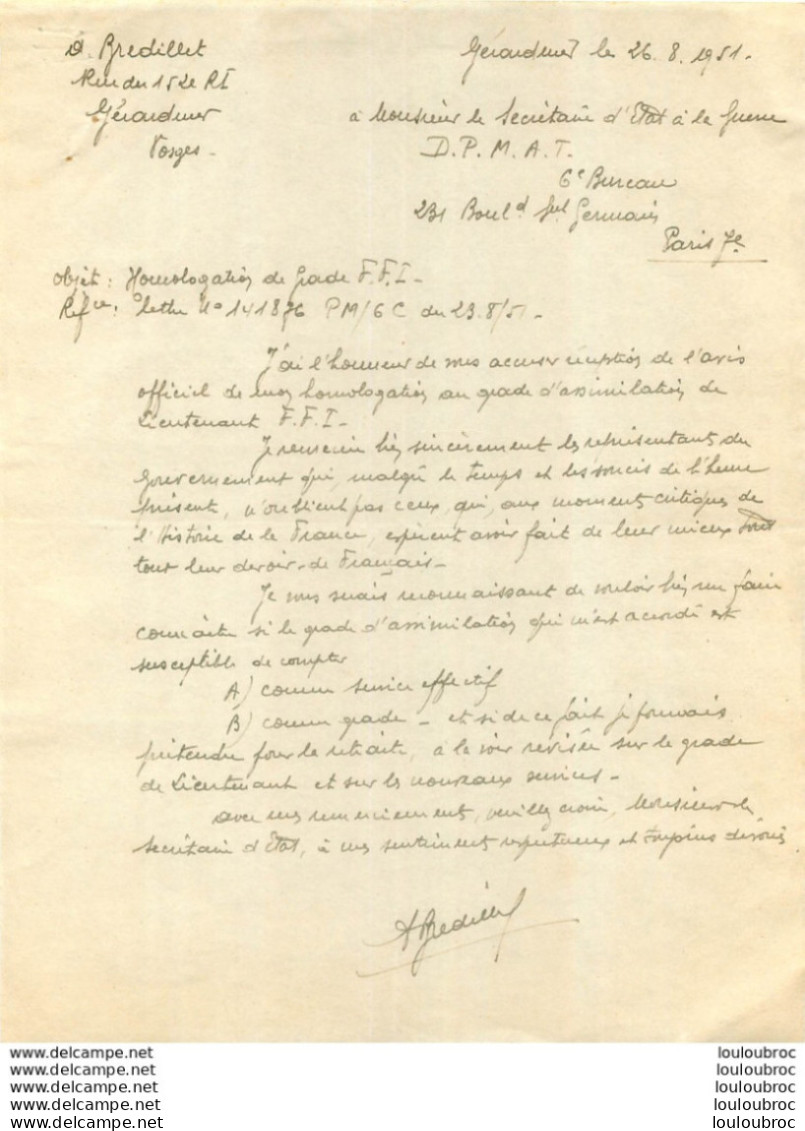 A. Bredillet
Rue du 152e RI
Gérardmer
Vosges -
Gérardmer le 26. 8. 1951 -
à Monsieur le Secrétaire d'Etat à la Guerre
D. P. M. A. T.
6e Bureau
231 Boul.d St Germain
Paris 7e
Objet : Homologation de grade F.F.I -
Réf ce : lettre N° 141876 PM/6C du 23.8/51 -
J'ai l'honneur de vous accuser réception de l'avis
officiel de mon homologation au grade d'assimilation de
Lieutenant F.F.I -
Je remercie bien sincèrement les représentants du
Gouvernement qui, malgré le temps et les soucis de l'heure
présente, n'oublient pas ceux, qui, aux moments critiques de
l'Histoire de la France, espèrent avoir fait de leur mieux
tout leur devoir de Français -
Je vous serais reconnaissant de vouloir bien me faire
connaître si le grade d'assimilation qui m'est accordé est
susceptible de compter
A) comme service effectif
B) comme grade - et si de ce fait je pouvais
prétendre pour la retraite, à la voir révisée sur le grade
de Lieutenant et sur les nouveaux services -
Avec mes remerciements, veuillez croire, Monsieur le
Secrétaire d'Etat, à mes sentiments respectueux et toujours dévoués
ABredillet
www.delcampe.net
www.delcampe.net
www.delcampe.net
www.delcampe.net
www.delcampe.net
louloubroc
louloubroc
louloubroc
louloubroc
louloubroc